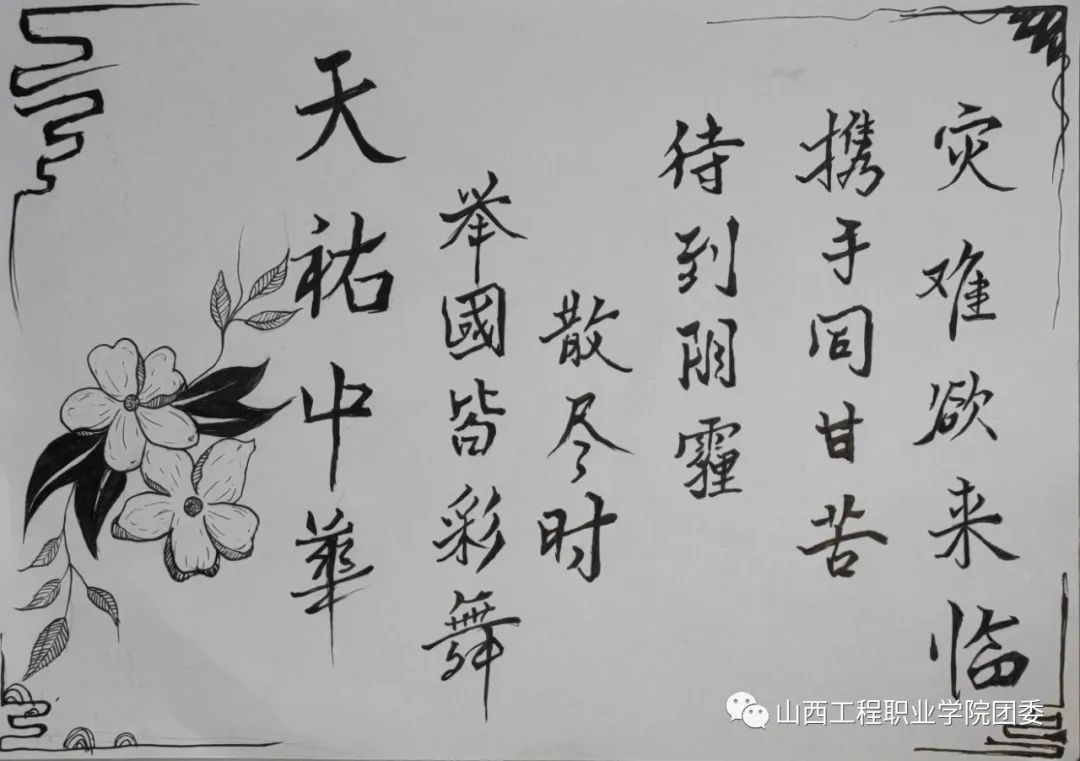 灾难欲来临
携手同甘苦
待到阴霾
散尽时
举國皆彩舞
天祐中華
山西工程职业学院团委